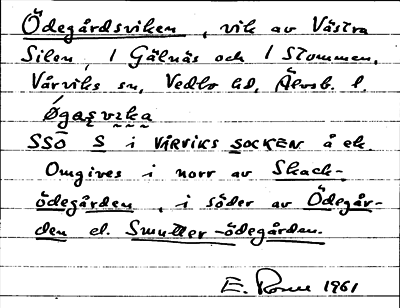 Ödegårdsviken, vik av Västra
Silen, 1 Gälnäs och 1 Stommen,
Vårviks sn, Vedbo hd, Älvsb. l.
Øgas̨vika
SSO S i VÅRVIKS SOCKEN å ek.
Omgives i norr av Skack-
ödegården, i söder av Ödegår-
den el. Smuller-ödegården.
E. 1961